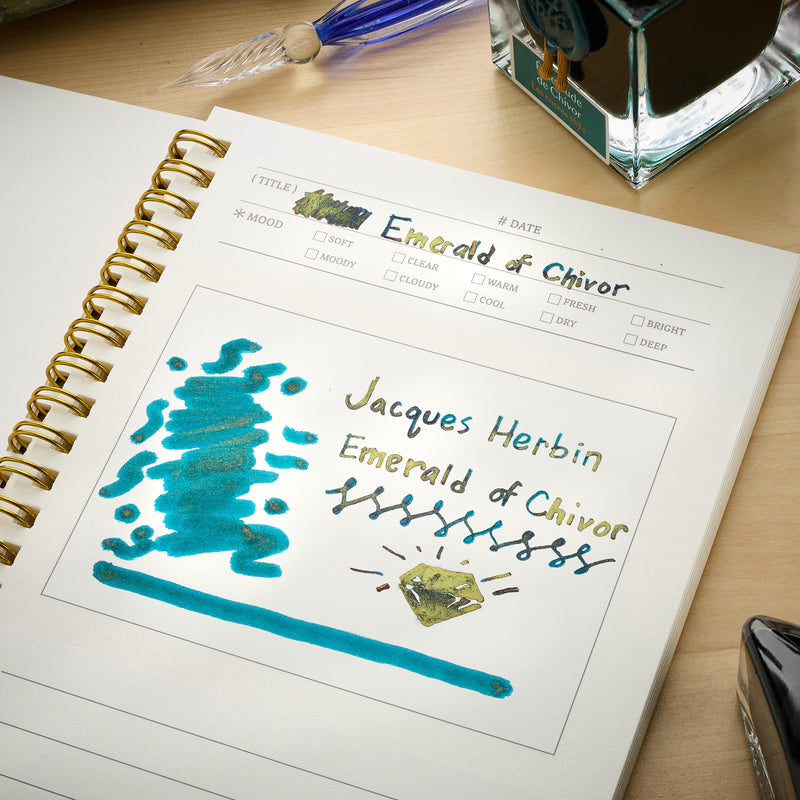 de Chivor
( TITLE ) Emerald of Chivor
# DATE
* MOOD
SOFT CLEAR WARM FRESH BRIGHT
MOODY CLOUDY COOL DRY DEEP
Jacques Herbin
Emerald of Chivor